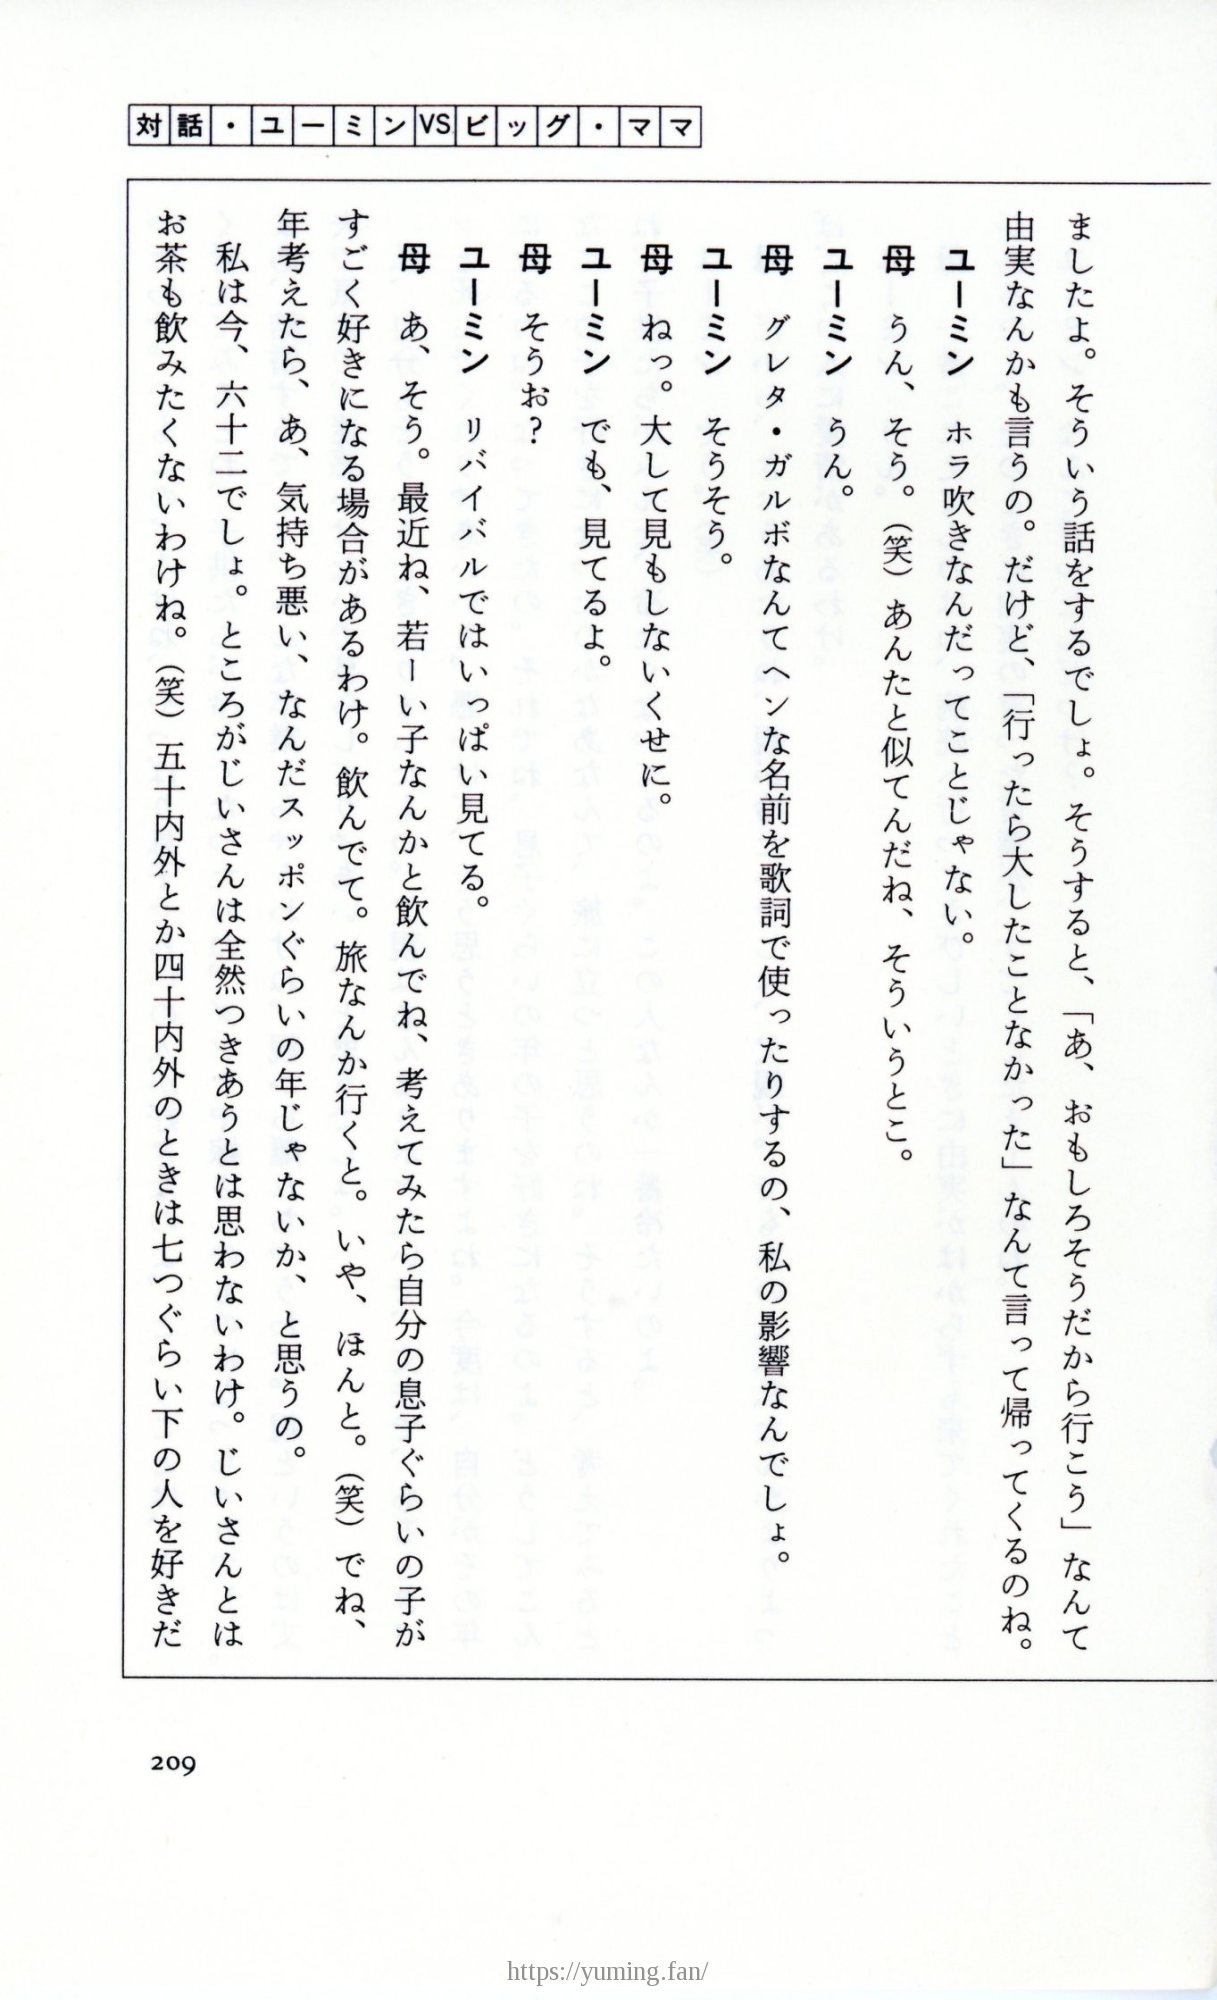 対話・ユーミンVSビッグ・ママ
ましたよ。そういう話をするでしょ。そうすると、「あ、おもしろそうだから行こう」なんて
由実なんかも言うの。だけど、「行ったら大したことなかった」なんて言って帰ってくるのね。
ユーミン　ホラ吹きなんだってことじゃない。
母　うん、そう。（笑）あんたと似てんだね、そういうとこ。
ユーミン　うん。
母　グレタ・ガルボなんてヘンな名前を歌詞で使ったりするの、私の影響なんでしょ。
ユーミン　そうそう。
母　ねっ。大して見もしないくせに。
ユーミン　でも、見てるよ。
母　そうお？
ユーミン　リバイバルではいっぱい見てる。
母　あ、そう。最近ね、若ーい子なんかと飲んでね、考えてみたら自分の息子ぐらいの子が
すごく好きになる場合があるわけ。飲んでて。旅なんか行くと。いや、ほんと。（笑）でね、
年考えたら、あ、気持ち悪い、なんだスッポンぐらいの年じゃないか、と思うの。
私は今、六十二でしょ。ところがじいさんは全然つきあうとは思わないわけ。じいさんとは
お茶も飲みたくないわけね。（笑）五十内外とか四十内外のときは七つぐらい下の人を好きだ
209
https://yuming.fan/